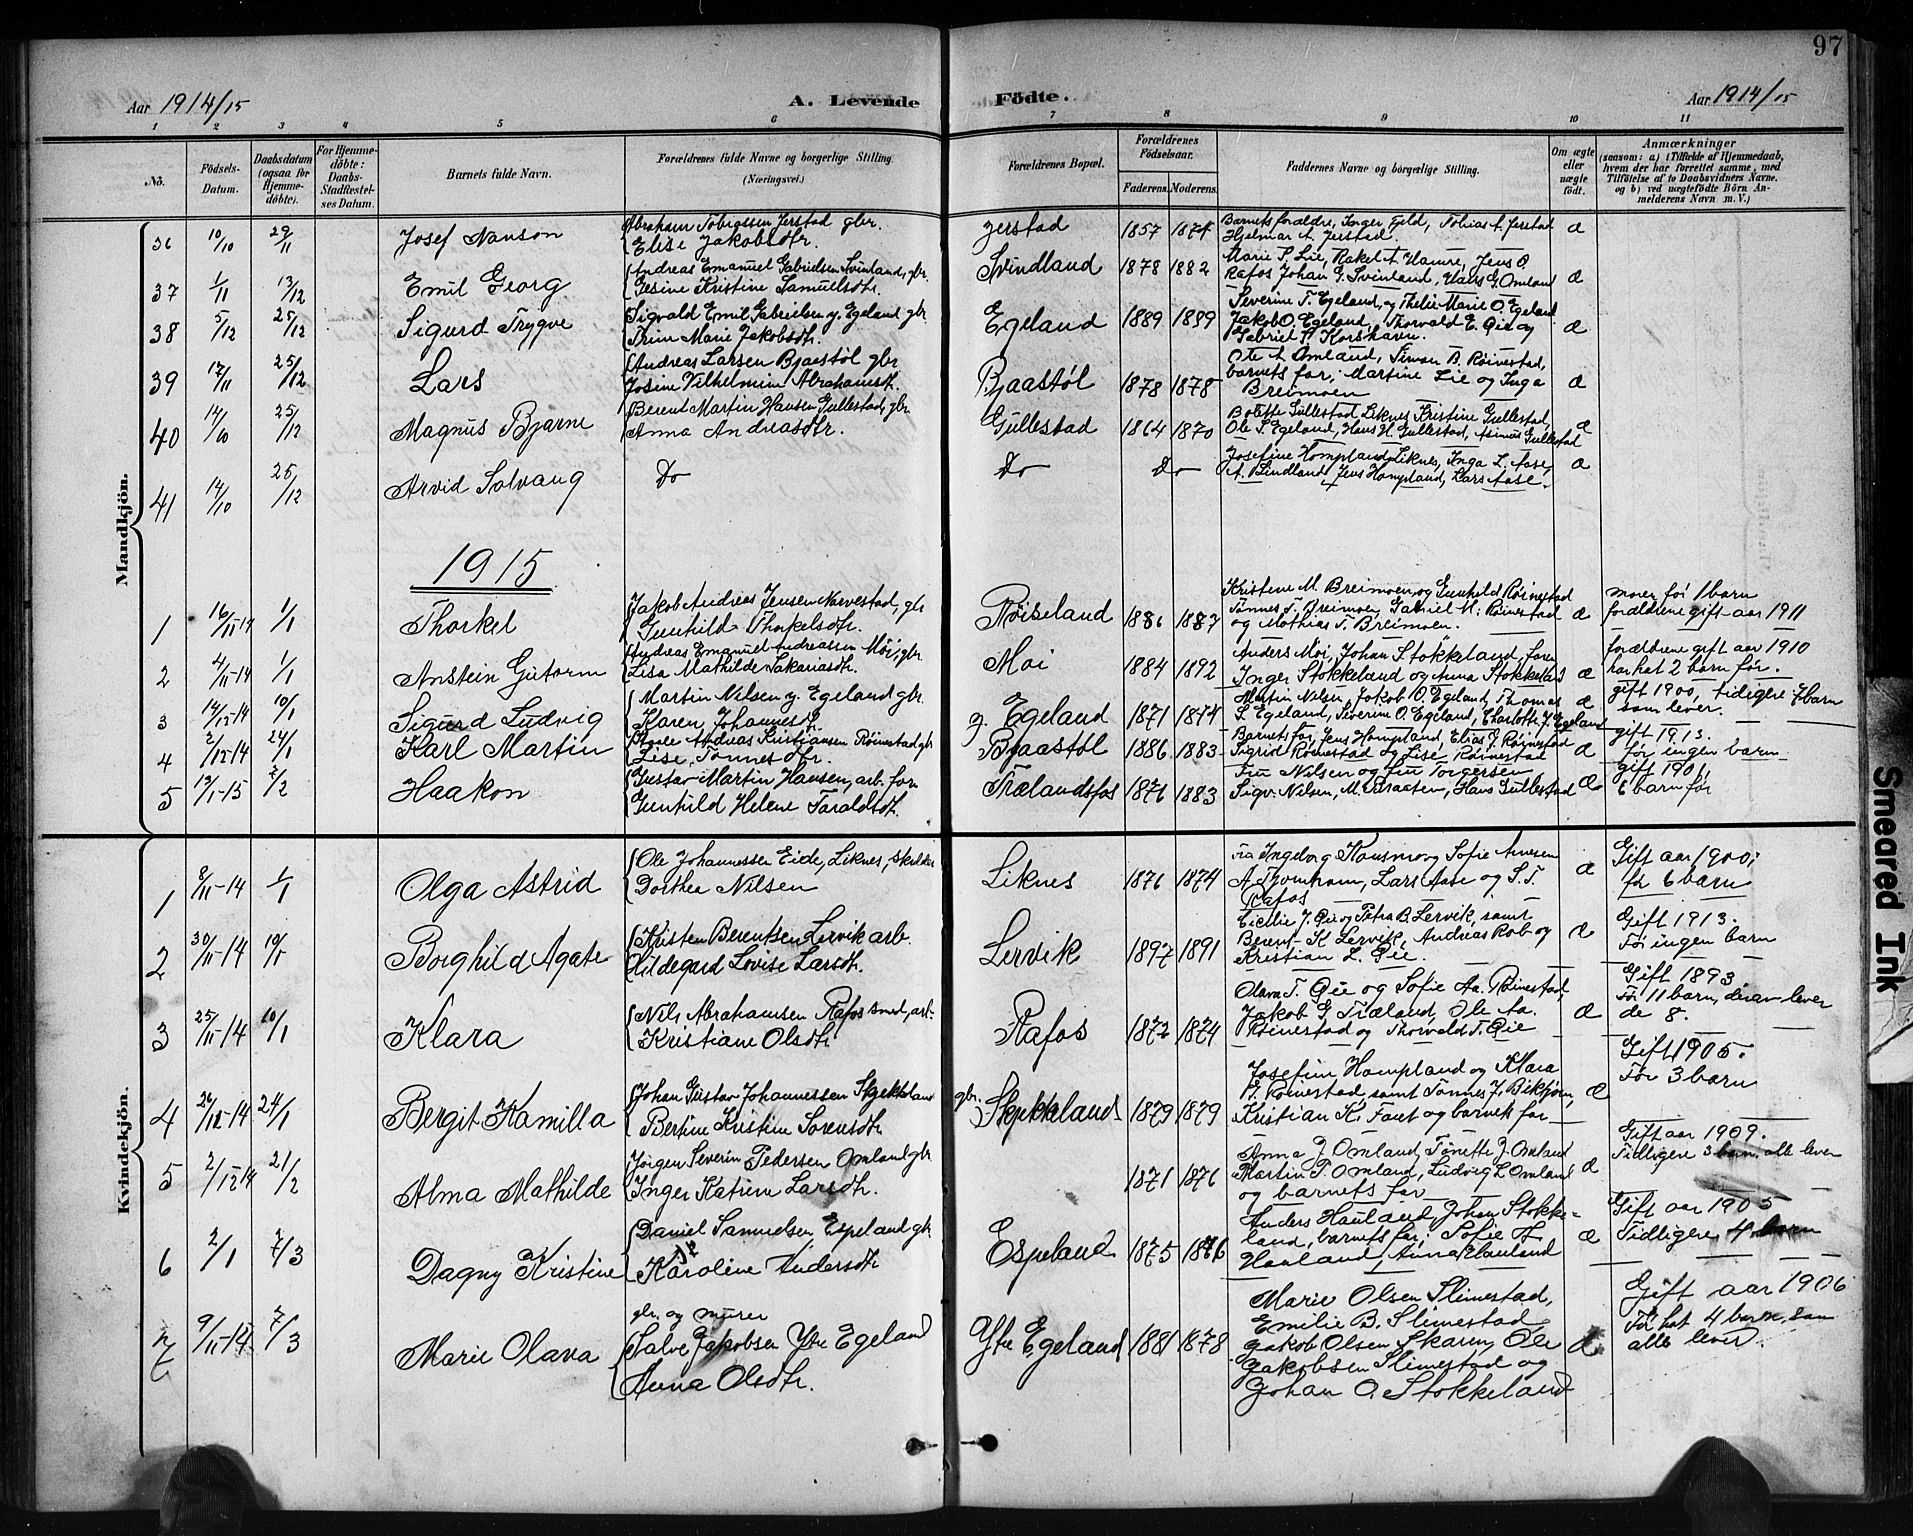 97
Aar 1914/15
A. Levende Födte.
Aar 1914/15
1 2 3 4 5 6 7 8 9 10 11
No.
Födsels-
Datum.
Daabsdatum
(ogsaa for
Hjemme-
döbte).
For Hjemme-
döbte:
Daabs-
Stadfæstel-
ses Datum.
Barnets fulde Navn.
Forældrenes fulde Navne og borgerlige Stilling.
(Næringsvei.)
Forældrenes Bopæl.
Forældrenes
Födselsaar.
Faderens. Moderens.
Faddernes Navne og borgerlige Stilling.
Om ægte
eller
uægte
födt.
Anmærkninger
(saasom: a) i Tilfælde af Hjemmedaab,
hvem der har forrettet samme, med
Tilföielse af to Daabsvidners Navne,
og b) ved uægtefödte Börn An-
melderens Navn m. V.)
Mandkjön.
36 10/10 29/11 Josef Nanson
Abraham Tobiassen Jerstad gbr.
Elise Jakobsdtr.
Jerstad 1857 1874
Barnets forældre, Inger Fjeld, Tobias A. Jerstad
Hjelmar A. Jerstad. æ
37 1/11 13/12 Emil Georg
Andreas Emanuel Gabrielsen Svinland, gbr
Gesine Kristine Samuelsdtr.
Svindland 1878 1882
Marie S. Lie, Rakel A. Hamre, Jens O.
Rafos Johan G. Svinland, Hans G. Omland æ
38 5/12 25/12 Sigurd Trygve
Sigvald Emil Gabrielsen y. Egeland gbr
Trine Marie Jakobsdtr.
Egeland 1889 1889
Severine T. Egeland, og Thelie Marie O. Egeland
Jakob O. Egeland, Thorvald E. Øie og
Gabriel S. Korshavn. æ
39 17/11 25/12 Lars
Andreas Larsen Bjaastøl gbr
Josine Vilhelmine Abrahamsdtr.
Bjaastøl 1878 1878
Ole A. Omland, Simon B. Røinestad,
barnets far, Martine Lie og Inga
Breimoen æ
40 14/10 25/12 Magnus Bjarne
Berent Martin Hansen Gullestad, gbr
Anna Andreasdtr.
Gullestad 1864 1870
Bolette Gullestad, Liknes, Kristine Gullestad,
Ole S. Egeland, Hans H. Gullestad, Asmus Gullestad æ
41 14/10 25/12 Arvid Solvang
Do
Do Do
Josefine Hompland, Liknes, Inga L. Aase,
A. Lindland, Jens Hompland, Lars Aase. æ
1915
1 16/11-14 1/1 Thorkel
Jakob Andreas Jensen Narvestad, gbr
Gunhild Thorkelsdtr.
Røiseland 1886 1887
Kristene M. Breimoen, og Gunhild Røinestad
Tønnes T. Breimoen, Gabriel M. Røinestad
og Mathias T. Breimoen. æ
moren før 1 barn
forældrene gift aar 1911
2 4/11-14 1/1 Anstein Gutorm
Andreas Emanuel Andreassen Møi, gbr
Lisa Mathilde Sakariasdtr.
Moi 1884 1892
Anders Moi, Johan Stokkeland, faren
Inger Stokkeland og Anna Stokkeland æ
forældrene gift aar 1910
har hat 2 barn før.
3 14/12-14 10/1 Sigurd Ludvig
Martin Nilsen y. Egeland gbr
Karen Johannesdtr.
y. Egeland 1871 1874
Martin Nilsen, Jakob O. Egeland, Thomas
S. Egeland, Severin O. Egeland, Charlotte J. Egeland æ
gift 1900, tidligere 7 barn
som lever.
4 2/12-14 24/1 Karl Martin
Aasle Andreas Kristiansen Røinestad gbr
Lise Tønnesdtr.
Bjaastøl 1886 1883
Barnets far, Jens Hompland, Elias J. Røinestad
Sigrid Røinestad og Lise Røinestad æ
gift 1913.
før ingen barn
5 13/1-15 7/2 Haakon
Gustav Martin Hansen, arb. for
Gunhild Helene Taraldsdtr.
Trælandsfos 1876 1883
Fru Nilsen og fru Torgersen
Sigv. Nilsen, M. Braaten, Hans Gullestad æ
gift 1901,
6 barn før
Kvindekjön.
1 8/11-14 1/1 Olga Astrid
Ole Johannessen Eide, Liknes, skredder
Dorthea Nilsen
Liknes 1876 1874
Fra Ingeborg Kausmo og Sofie Arnesen
A. Tjomham, Lars Aase og S. T.
Rafos æ
Gift aar 1900;
før 6 barn
2 30/11-14 10/1 Borghild Agate
Kristen Berentsen Lervik arb.
Hildegard Lovise Larsdtr.
Lervik 1897 1891
Cicelie J. Øie og Petra B. Lervik, samt
Berent K. Lervik, Andreas Rob og
Kristian L. Øie. æ
Gift 1913.
Før ingen barn
3 25/11-14 10/1 Klara
Nils Abrahamsen Rafos smed, arb.
Kristiane Olsdtr
Rafos 1872 1874
Olava T. Øie og Sofie Aa. Røinestad,
Jakob G. Træland, Ole Aa.
Røinestad og Thorvald T. Øie æ
Gift 1893
Før 11 barn, derav lever
de 8.
4 26/12-14 24/1 Bergit Kamilla
Johan Gustav Johannessen Skjekkeland
Bertine Kristine Sørensdtr
gbr. Skjekkeland 1879 1879
Josefine Hompland og Klara
G. Røinestad, samt Tønnes J. Birkjem,
Kristian K. Faret og barnets far æ
Gift 1905.
Før 3 barn
5 2/12 14 21/2 Alma Mathilde
Jørgen Severin Pedersen Omland gbr
Inger Katrine Larsdtr.
1871 1876
Anna J. Omland, Tønette J. Omland
Martin P. Omland, Ludvig L. Omland
og barnets far æ
Gift aar 1909.
Tidligere 3 barn, alle lever
6 2/1 7/3 Dagny Kristine
Daniel Samuelsen Espeland gbr
Karoline Andersdtr
Espeland 1875 1876
Anders Hauland, Johan Stokke-
land, barnets far, Sofie H.
Hauland, Anna Hauland æ
Gift aar 1905
Tidligere 4 barn
7 9/11-14 7/3 Marie Olava
gbr. og murer
Salve Jakobsen Ytre Egeland
Anna Olsdtr.
Ytre Egeland 1881 1878
Marie Olsen Slimestad,
Emilie B. Slimestad
Jakob Olsen Skaren, Ole
Jakobsen Slimestad og
Johan O. Stokkeland æ
Gift aar 1906
Før hat 4 barn, som
alle lever.
Smeared Ink